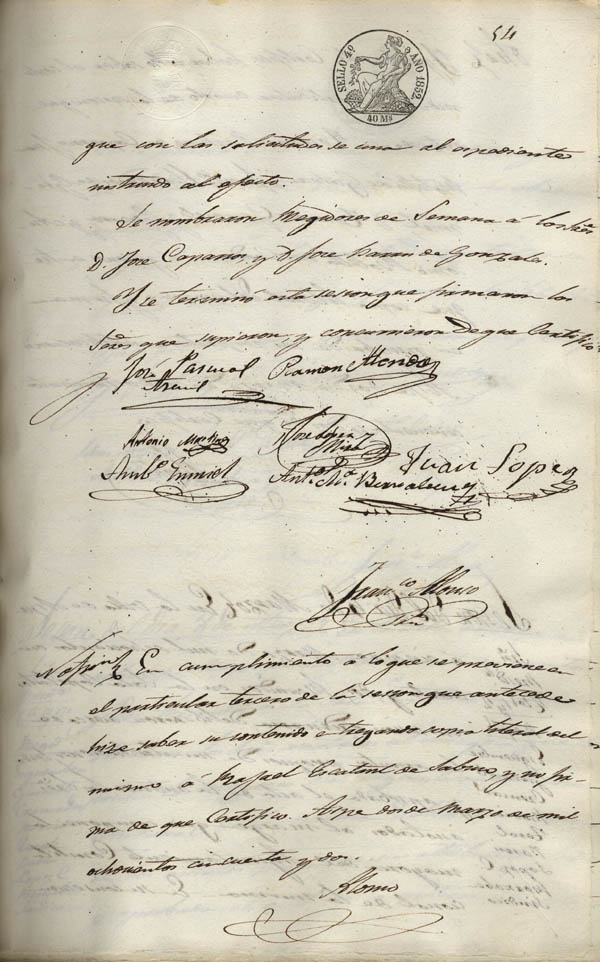 54
SELLO 4º AÑO 1852.
40 Ms
que con las solicitudes se una al espediente
instruido al efecto.
Se nombraron Regidores de Semana á los Sres
D. Jose Caparros, y D. Jose Maria de Gonzalez.
Y se terminó esta sesion que firmaron los
Sres. que supieron, y concurrieron de que Certifico
José Pascual Ramon Mendez
Antonio Martinez Jose Lopez
Juan Lopez
Ambº Ant. Mª
Franco Alonso
En cumplimiento á lo que se previene en
el particular tercero de la sesion que antecede
hize saber su contenido entregando copia literal del
mismo á Rafael de y no fir-
ma de que Certifico. dos de Marzo de mil
ochocientos cincuenta y dos.
Alonso